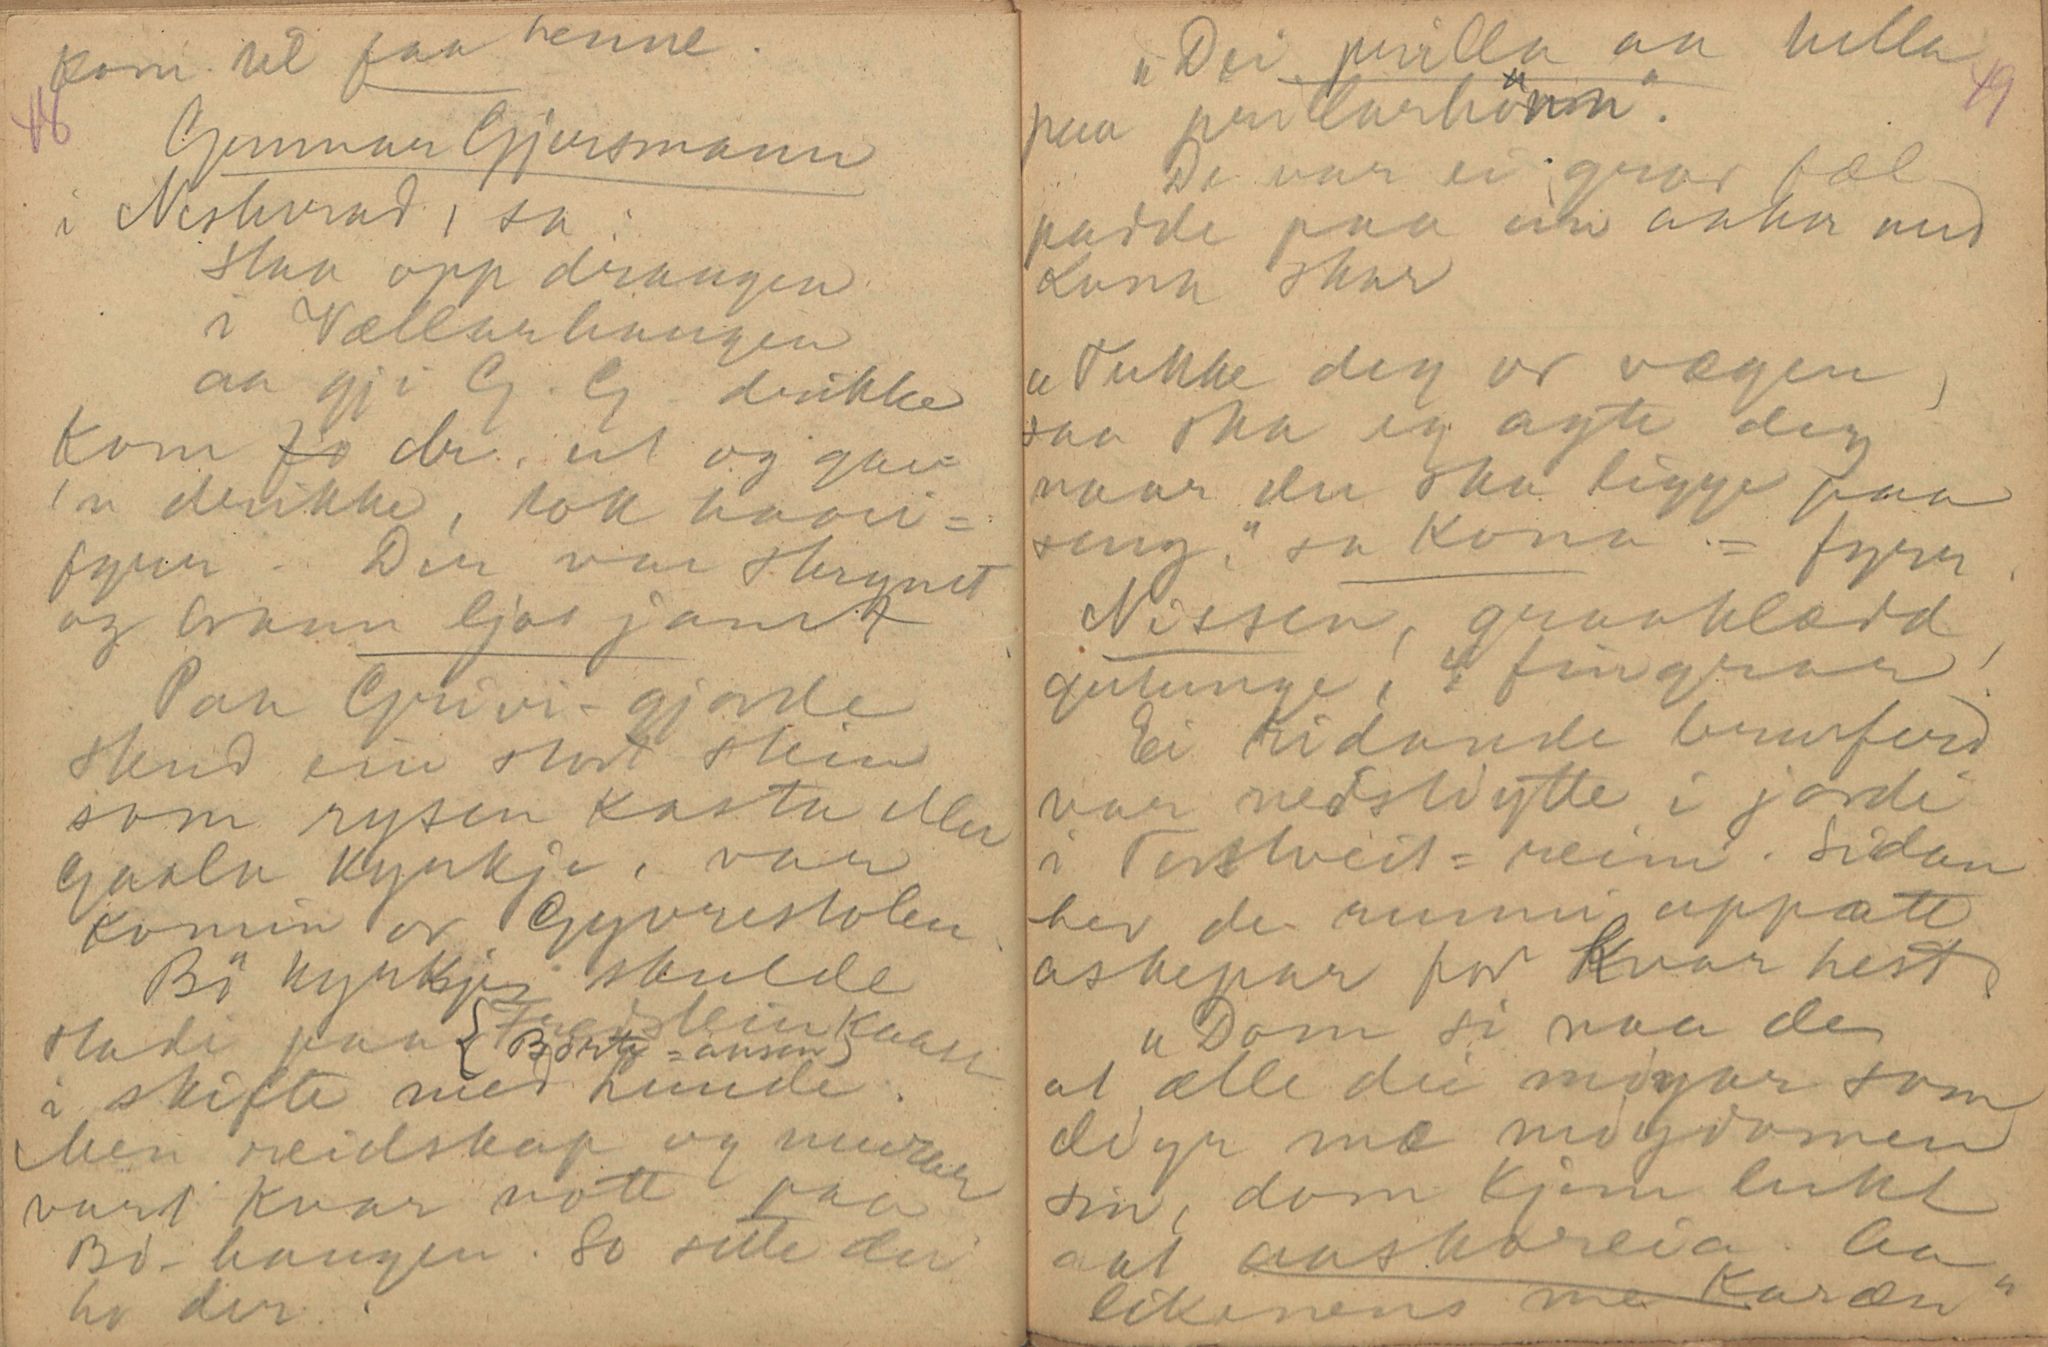 48
kom til faa henne.
Gunnar Gjersmann
i Nesherad, sa:
Staa opp draugen
i Vællarhaugen
aa gji G. G. drikke
Kom so der ut og gav
'n drikke, tok haari=
fyrer. Der var skrymt
og brann ljos jamt
Paa Grivi-gjorde
stend ein stor stein
som rysen kasta etter
gaala kyrkje, var
komin or Gyvrestolen.
Bö kyrkje skulde
stadi paa {Freistein Kaasi
Börte=aasen}
i skifte med Lunde.
Men reidskap og murar
vart kvar nott paa
Bö-haugen. So sette dei
ho der.
49
"Dei prilla aa tulla
paa prillarhönn".
De var ei grov fæl
padde paa ein aaker med
kona skar
"Tukke deg or vægen,
saa ska eg agte deg
naar du ska ligge paa
seng," sa Kona - fyrr.
Nissen, graaklædd
gutunge, 4 fingrar,
Ei ridande brurferd
var nedstöytte i jordi
i Tortveit=reini. Sidan
hev de runni uppatt
askepar for kvar hest,
"Dom si naa de
at ælle dei möyar som
döyr mæ möydomen
sin, dom kjem lukt
at aaskoreia. Aa
likerens me Karæn"